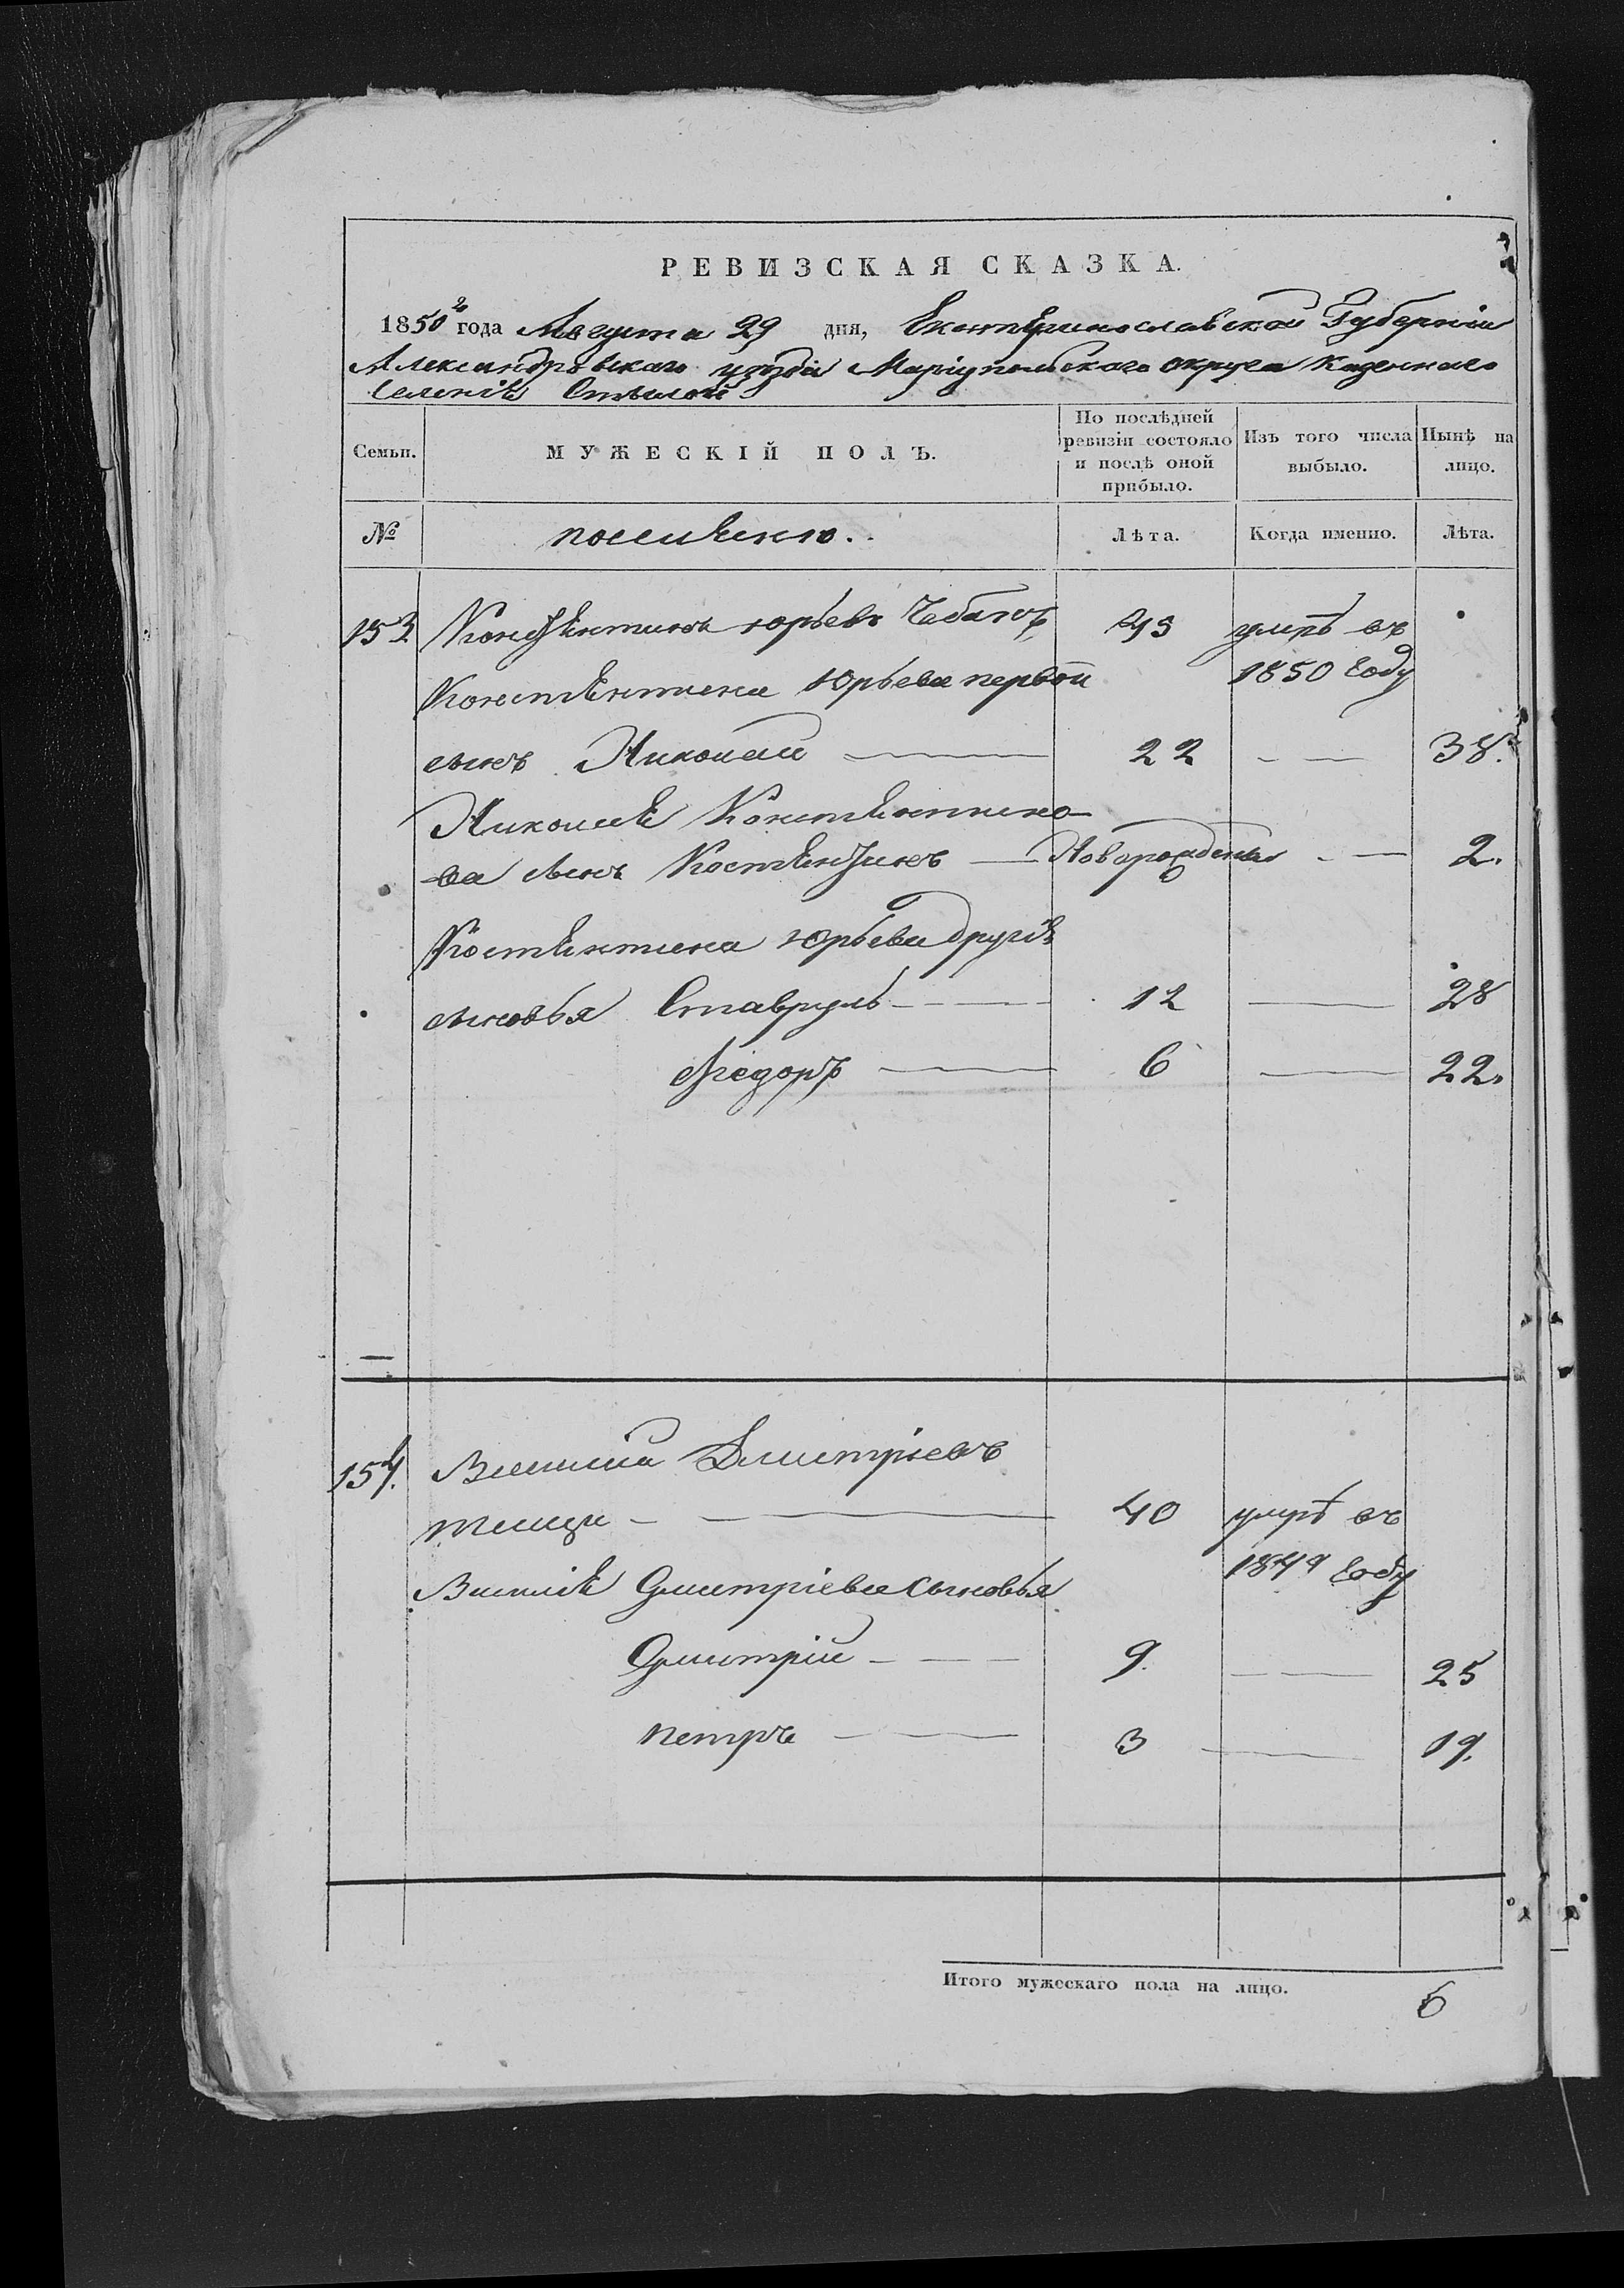 РЕВИЗСКАЯ СКАЗКА.
1850го года Августа 29 дня, Екатеринославской Губерніи
Александровскаго уѣзда Маріупольскаго округа Казеннаго
Селенія Стыла
Семьи. МУЖЕСКІЙ ПОЛЪ. По послѣдней ревизіи состояло и послѣ оной прибыло. Изъ того числа выбыло. Нынѣ на лицо.
№ Лѣта. Когда именно. Лѣта.
153 Константинъ Юрьевъ Чебанъ 45 умръ въ
Константина Юрьева первой 1850 году
сынъ Николай 22 38.
Николая Константино-
ва сынъ Костянтинъ Новорожденъ 2.
Костянтина Юрьева другія
сыновья Ставруль 12 28
Ѳедоръ 6 22.
154. Василій Дмитріевъ
40 умръ въ
Василія Дмитріева сыновья 1849 году
Дмитрій 9. 25
Петръ 3 19.
Итого мужескаго пола на лицо. 6